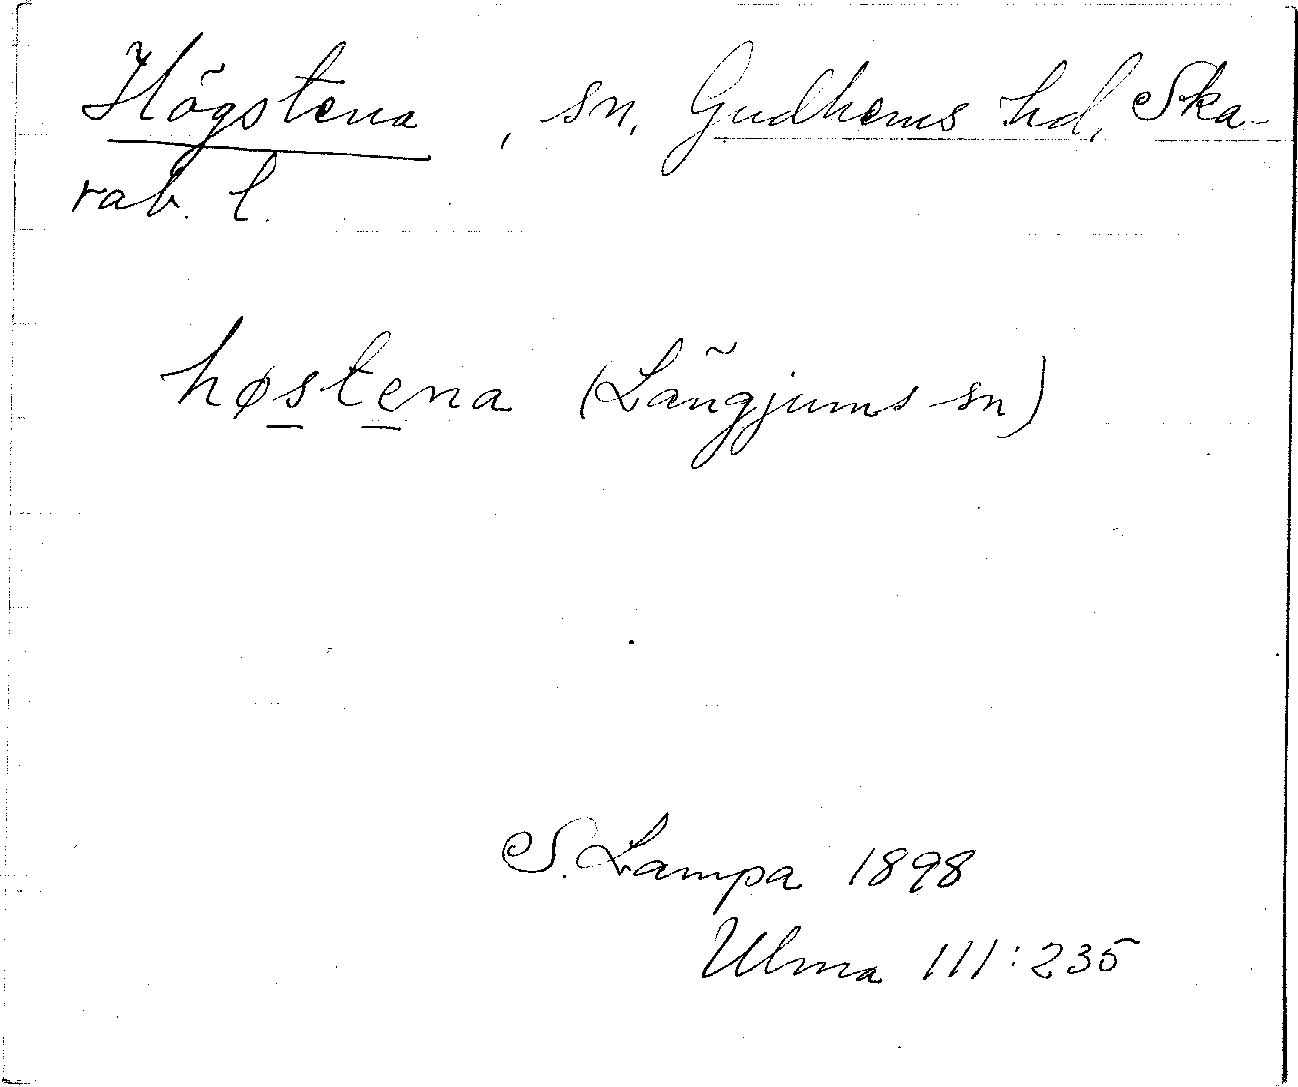 Högstena, sn, Gudhems hd, Ska-
rab. l.
høstena (Längjums sn)
S. Lampa 1898
Ulma 111:235